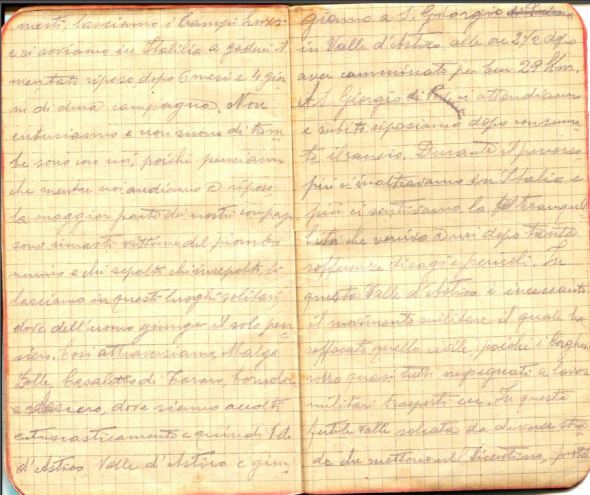 menti lasciamo i Campi Luser-
e ci avviamo in Italia a goderci il
meritato riposo, dopo 6 mesi e 4 gior
ni di dura campagna. Non
entusiasmo e non suono di trom
be sono con noi, poichè pensiamo
che mentre noi andiamo a riposo
la maggior parte dei nostri compagni
sono rimasti vittime del piombo
nemico e chi sepolti chi insepolti, li
lasciamo in questi luoghi solitari
dove dell'uomo giunge il solo pen
siero. Così attraversiamo Malga
Zolle, Casalotto di
e Lastero, dove siamo accolti
entusiasticamente e quindi
d'Astico. Valle d'Astico e giun-
giamo a S. Giorgio
in Valle d'Astico alle ore 2 1/2 dopo
aver camminato per ben 29 Km.
A S. Giorgio ci attendiamo
e subito riposiamo dopo consuma
to il rancio. Durante il percorso
più c'inoltravamo in Italia e
più ci sentivamo la tranquil
lità che veniva a noi dopo tante
sofferenze disagi e pericoli. In
questa Valle d'Astico è incessante
il movimento militare il quale ha
soffocato quello civile, poichè i borghesi
sono quasi tutti impegnati a lavori
militari trasporti ecc. In questa
fertile valle solcata da diverse stra
de che mettono nel Vicentino,